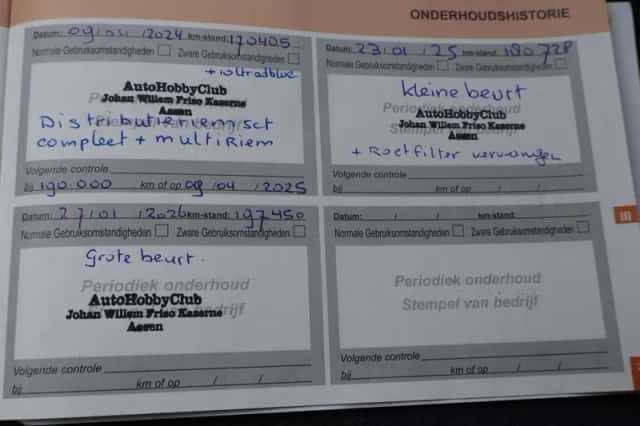 ONDERHOUDSHISTORIE
Datum: 09/04/2024 km-stand: 170405
Normale Gebruiksomstandigheden Zware Gebruiksomstandigheden
AutoHobbyClub
Johan Willem Friso Kazerne
Assen
Distributieriem set
compleet + multiRiem
Volgende controle
bij 190.000 km of op 09/04/2025
Datum: 23/01/25 km-stand: 180728
Normale Gebruiksomstandigheden Zware Gebruiksomstandigheden
kleine beurt
Periodiek onderhoud
AutoHobbyClub
Johan Willem Friso Kazerne
Stempel van bedrijf
Assen
+ Roetfilter vervangen
Volgende controle
bij km of op / /
Datum: 27/01/2026 km-stand: 197450
Normale Gebruiksomstandigheden Zware Gebruiksomstandigheden
Grote beurt.
Periodiek onderhoud
AutoHobbyClub
Johan Willem Friso Kazerne
Assen
Volgende controle
bij km of op / /
Datum: / / km-stand:
Normale Gebruiksomstandigheden Zware Gebruiksomstandigheden
Periodiek onderhoud
Stempel van bedrijf
Volgende controle
bij km of op / /